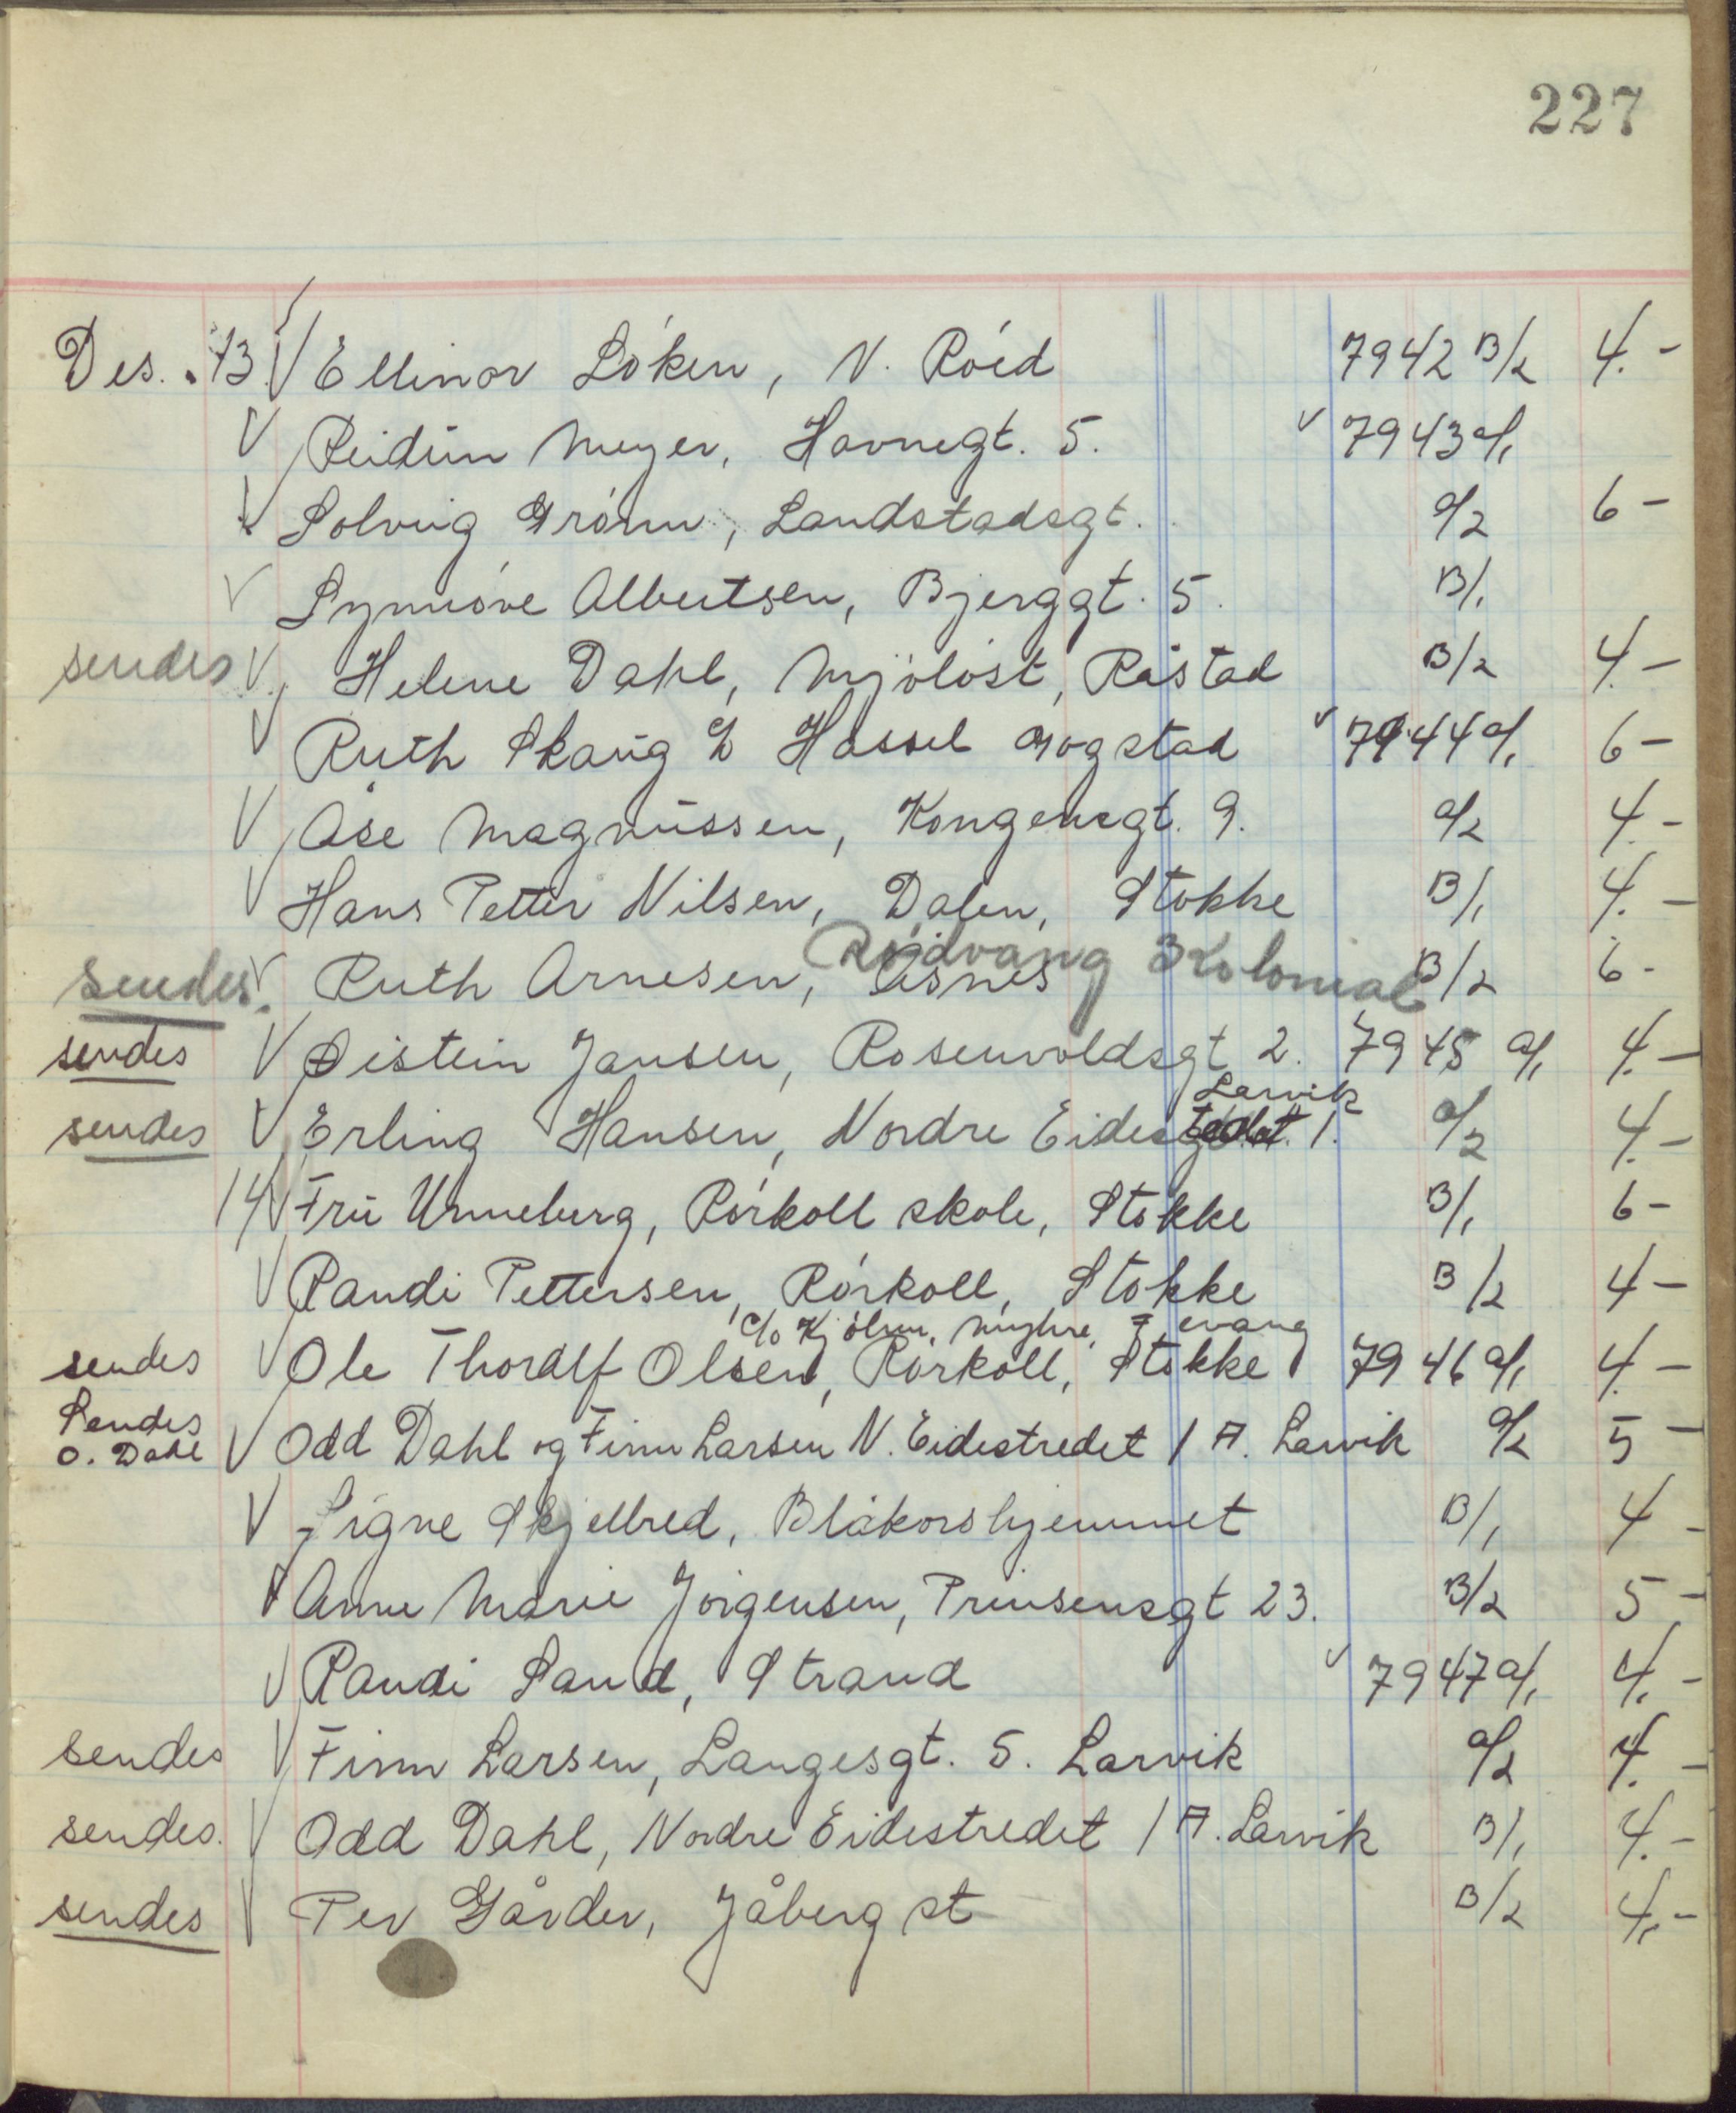 227
Des. 13. V Ellinor Lóken, N. Róed 7942 B/2 4.-
V Reidun Meyer, Havnegt. 5. v 7943 a/1
V Solveig Grónn, Landstadsgt. a/2 6 -
V Synnóve Albertsen, Bjerggt. 5. B/1
sendes V Helene Dahl, Mjölöst, Råstad B/2 4.-
V Ruth Skaug % Hassel Gogstad v 7944 a/1 6 -
V Åse Magnussen, Kongensgt. 9. a/2 4.-
V Hans Petter Nilsen, Dalen, Stokke B/1 4.-
Rødvang Kolonial
sendes. V Ruth Arnesen, Åsnes B/2 6 -
sendes V Øistein Jansen, Rosenvoldsgt 2. 7945 a/1 4.-
Larvik
sendes V Erling Hansen, Nordre Eidestredet 1. a/2 4.-
14 V Fru Unneberg, Rórkoll skole, Stokke B/1 6 -
V Randi Pettersen, Rórkoll, Stokke B/2 4 -
c/o Kjölner, Myhre, Sevang
sendes V Ole Thoralf Olsen, Rórkoll, Stokke 7946 a/1 4.-
Sendes
O. Dahl V Odd Dahl og Finn Larsen N. Eidestredet 1 A. Larvik a/2 5 -
V Signe Skjelbred, Blåkorshjemmet B/1 4 -
V Anne Marie Jórgensen, Prinsensgt 23. B/2 5 -
V Randi Sand, Strand v 7947 a/1 4.-
sendes V Finn Larsen, Langesgt. 5. Larvik a/2 4.-
sendes. V Odd Dahl, Nordre Eidestredet 1 A. Larvik B/1 4.-
sendes V Per Gårder, Jåberg st B/2 4.-